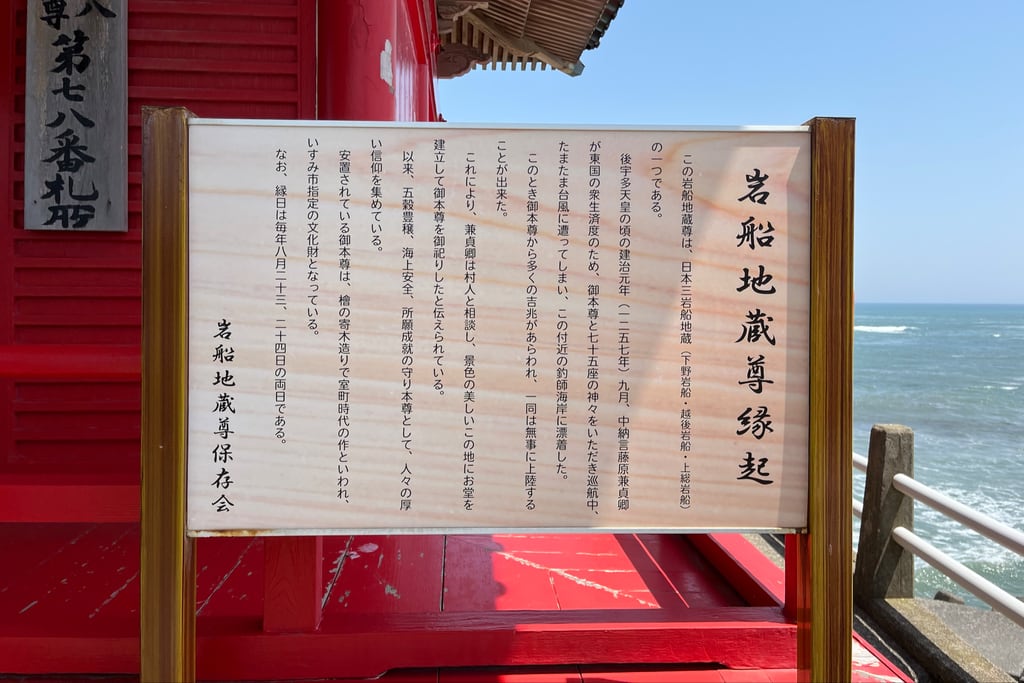 岩船地蔵尊縁起
この岩船地蔵尊は、日本三岩船地蔵（下野岩船・越後岩船・上総岩船）
の一つである。
後宇多天皇の頃の建治元年（一二五七年）九月、中納言藤原兼貞卿
が東国の衆生済度のため、御本尊と七十五座の神々をいただき巡航中、
たまたま台風に遭ってしまい、この付近の釣師海岸に漂着した。
このとき御本尊から多くの吉兆があらわれ、一同は無事に上陸する
ことが出来た。
これにより、兼貞卿は村人と相談し、景色の美しいこの地にお堂を
建立して御本尊を御祀りしたと伝えられている。
以来、五穀豊穣、海上安全、所願成就の守り本尊として、人々の厚
い信仰を集めている。
安置されている御本尊は、檜の寄木造りで室町時代の作といわれ、
いすみ市指定の文化財となっている。
なお、縁日は毎年八月二十三、二十四日の両日である。
岩船地蔵尊保存会
尊第七八番札所